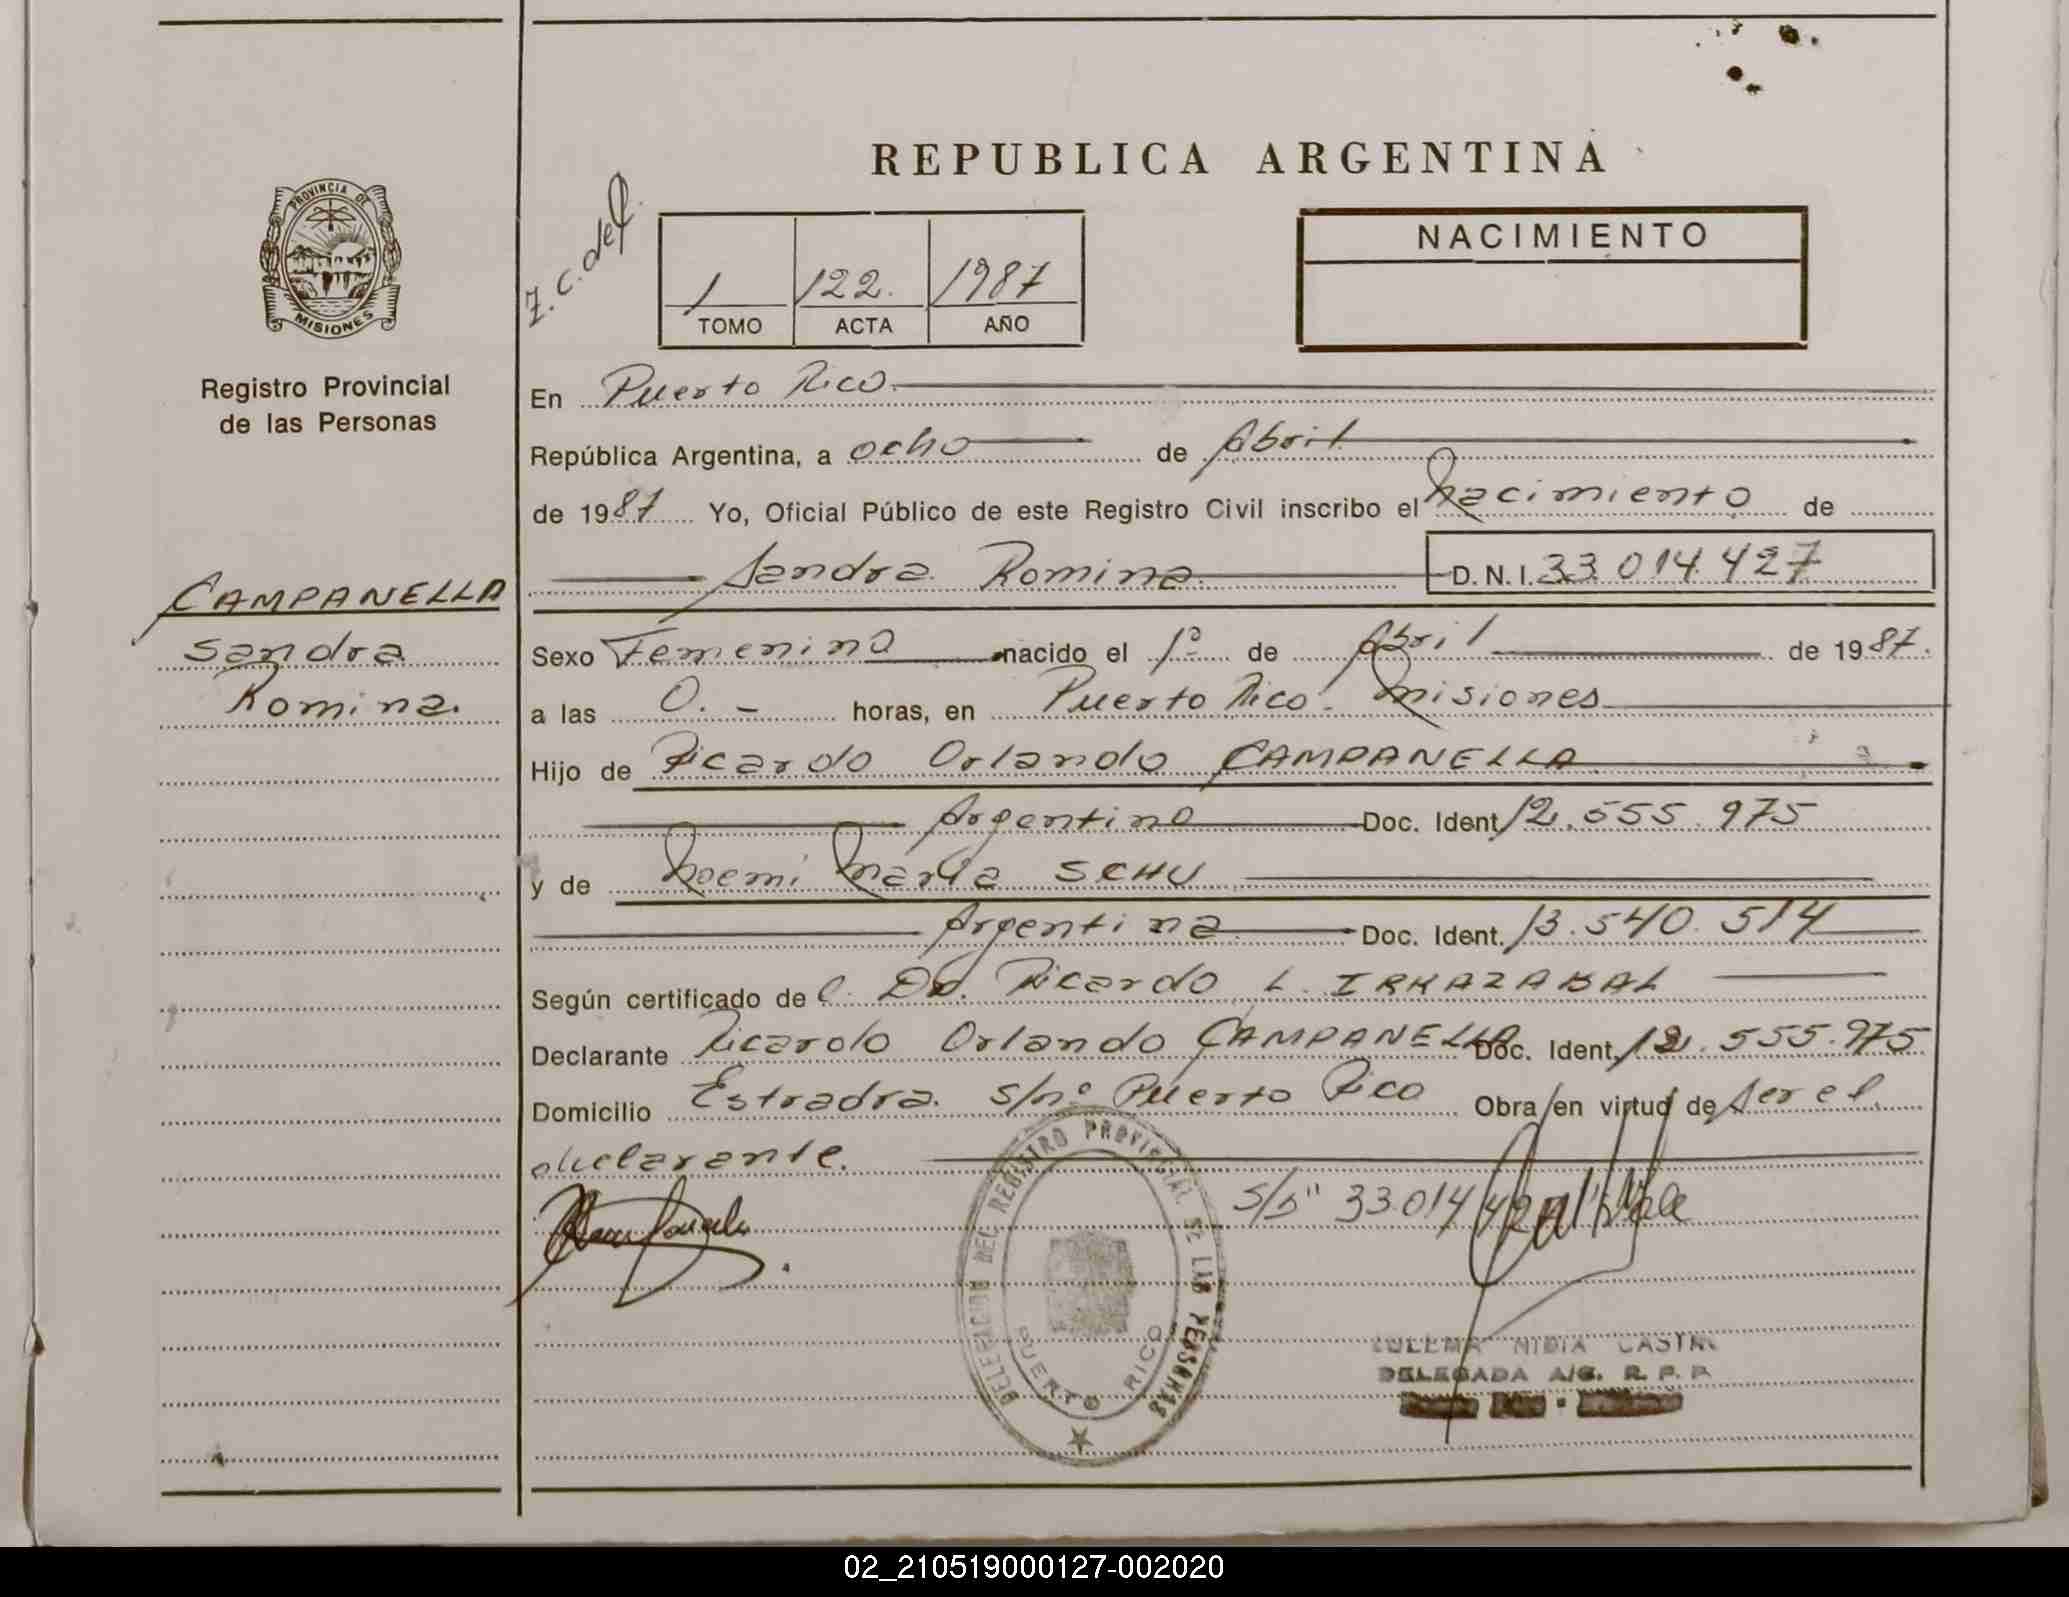 REPUBLICA ARGENTINA
PROVINCIA DE
MISIONES
Registro Provincial
de las Personas
CAMPANELLA
Sandra
Romina.
1 122. 1987
TOMO ACTA AÑO
NACIMIENTO
En Puerto Rico.
República Argentina, a ocho de Abril
de 1987 Yo, Oficial Público de este Registro Civil inscribo el Nacimiento de
Sandra Romina D. N. I. 33.014.427
Sexo Femenino nacido el 1º de Abril de 1987.
a las 0. - horas, en Puerto Rico. Misiones
Hijo de Ricardo Orlando CAMPANELLA
Argentino Doc. Ident. 12.555.975
y de Noemi Maria SCHU
Argentina Doc. Ident. 13.540.514
Según certificado de l. Dr. Ricardo L. IRRAZABAL
Declarante Ricardo Orlando CAMPANELLA Doc. Ident. 12.555.975
Domicilio Estradra s/nº Puerto Rico Obra en virtud de ser el
declarante.
33.014
DELEGACION DEL REGISTRO PROVINCIAL DE LAS PERSONAS
PUERTO RICO
NIDIA CASTRO
DELEGADA A/C. R. P. P.
02_210519000127-002020